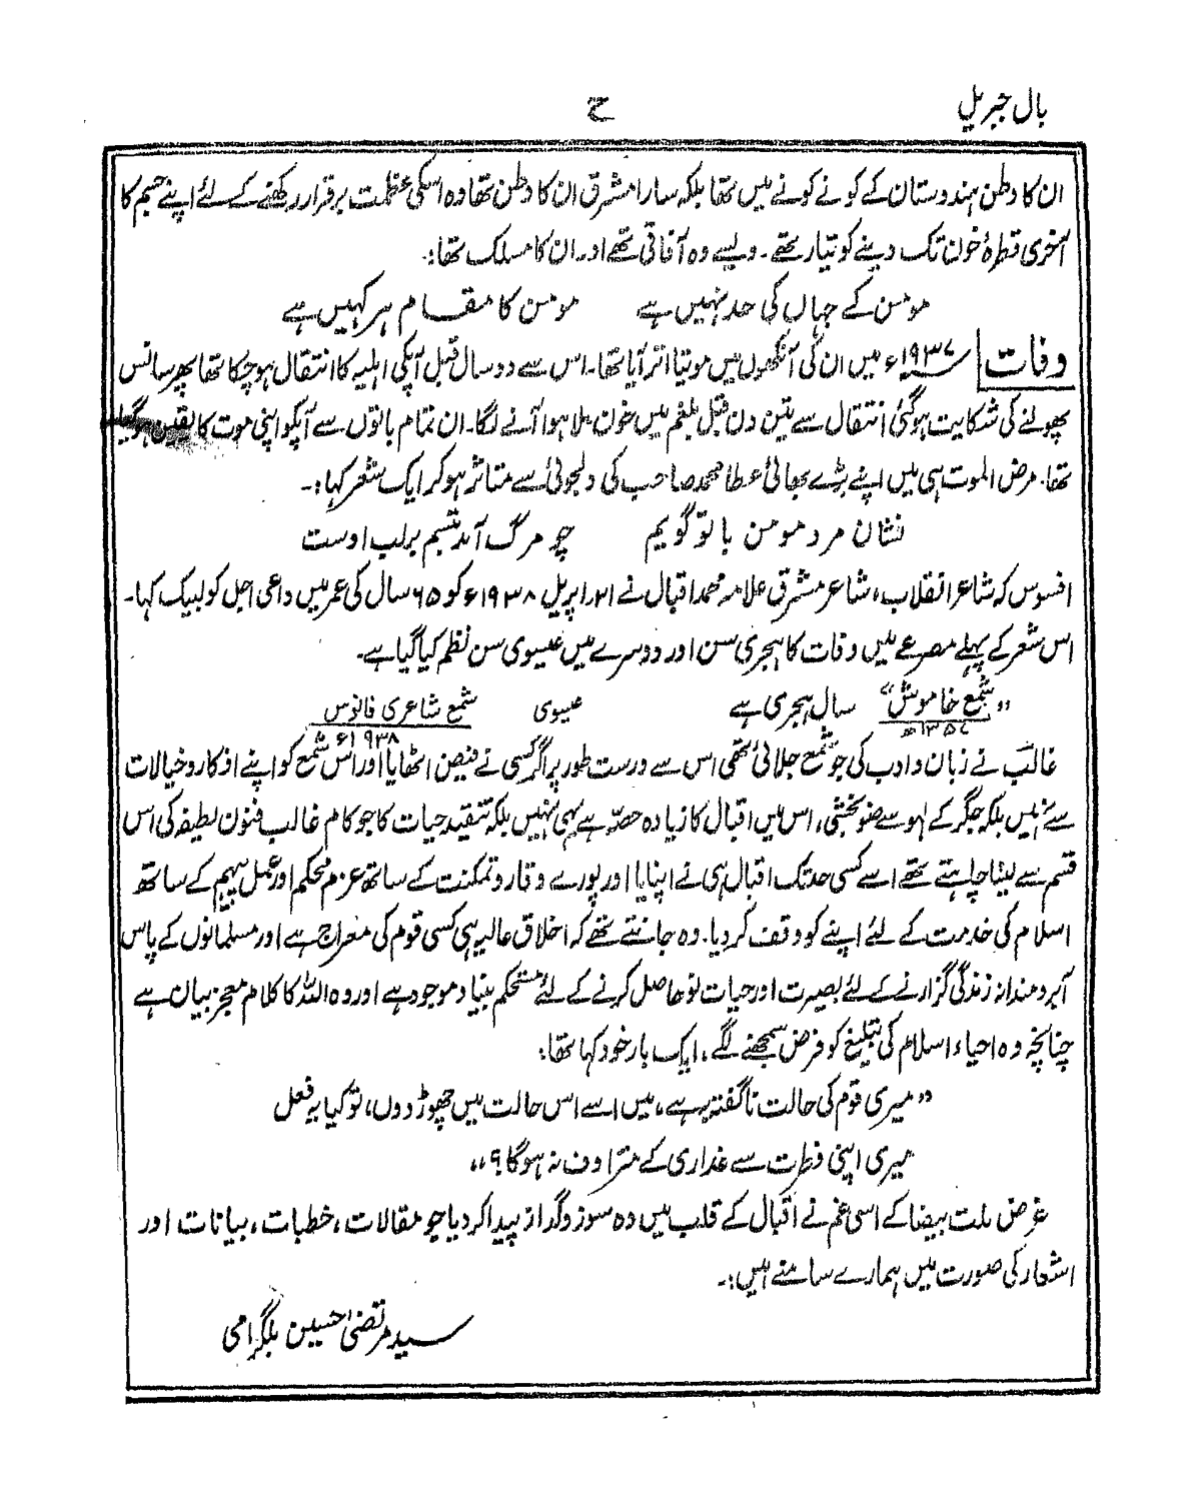 بال جبریل
ح
ان کا وطن ہندوستان کے کونے کونے میں تھا بلکہ سارا مشرق ان کا وطن تھا وہ اسکی عظمت برقرار رکھنے کے لئے اپنے جسم کا
آخری قطرۂ خون تک دینے کو تیار تھے۔ ویسے وہ آفاقی تھے اور ان کا مسلک تھا:
مومن کے جہاں کی حد نہیں ہے    مومن کا مقام ہر کہیں ہے
وفات ۱۹۳۷ء میں ان کی آنکھوں میں موتیا اتر آیا تھا۔ اس سے دو سال قبل آپکی اہلیہ کا انتقال ہو چکا تھا پھر سانس
پھولنے کی شکایت ہو گئی انتقال سے تین دن قبل بلغم میں خون ملا ہوا آنے لگا۔ ان تمام باتوں سے آپکو اپنی موت کا یقین ہو گیا
تھا۔ مرض الموت ہی میں اپنے بڑے بھائی عطا محمد صاحب کی دلجوئی سے متاثر ہو کر ایک شعر کہا:۔
نشان مرد مومن با تو گویم    چو مرگ آمد تبسم بر لب اوست
افسوس کہ شاعر انقلاب، شاعر مشرق علامہ محمد اقبال نے ۲۱؍اپریل ۱۹۳۸ء کو ۶۵ سال کی عمر میں داعی اجل کو لبیک کہا۔
اس شعر کے پہلے مصرعے میں وفات کا ہجری سن اور دوسرے میں عیسوی سن نظم کیا گیا ہے۔
"شمع خاموش" سال ہجری ہے    عیسوی    شمع شاعری فانوس
۱۳۵۷ھ    ۱۹۳۸ء
غالب نے زبان و ادب کی جو شمع جلائی تھی اس سے درست طور پر اگر کسی نے فیض اٹھایا اور اس شمع کو اپنے افکار و خیالات
سے نہیں بلکہ جگر کے لہو سے ضو بخشی، اس میں اقبال کا زیادہ حصہ ہے یہی نہیں بلکہ تنقید حیات کا جو کام غالب فنون لطیفہ کی اس
قسم سے لینا چاہتے تھے اسے کسی حد تک اقبال ہی نے اپنایا اور پورے وقار و تمکنت کے ساتھ عزم محکم اور عمل پیہم کے ساتھ
اسلام کی خدمت کے لئے اپنے کو وقف کر دیا۔ وہ جانتے تھے کہ اخلاق عالیہ ہی کسی قوم کی معراج ہے اور مسلمانوں کے پاس
آبرو مندانہ زندگی گزارنے کے لئے بصیرت اور حیات نو حاصل کرنے کے لئے مستحکم بنیاد موجود ہے اور وہ اللہ کا کلام معجز بیان ہے
چنانچہ وہ احیاء اسلام کی تبلیغ کو فرض سمجھنے لگے، ایک بار خود کہا تھا:
"میری قوم کی حالت ناگفتہ بہ ہے، میں اسے اس حالت میں چھوڑ دوں، تو کیا یہ فعل
میری اپنی فطرت سے غداری کے مترادف نہ ہوگا؟"
غرض ملت بیضا کے اسی غم نے اقبال کے قلب میں وہ سوز و گداز پیدا کر دیا جو مقالات، خطبات، بیانات اور
اشعار کی صورت میں ہمارے سامنے ہیں:۔
سید مرتضیٰ حسین بلگرامی